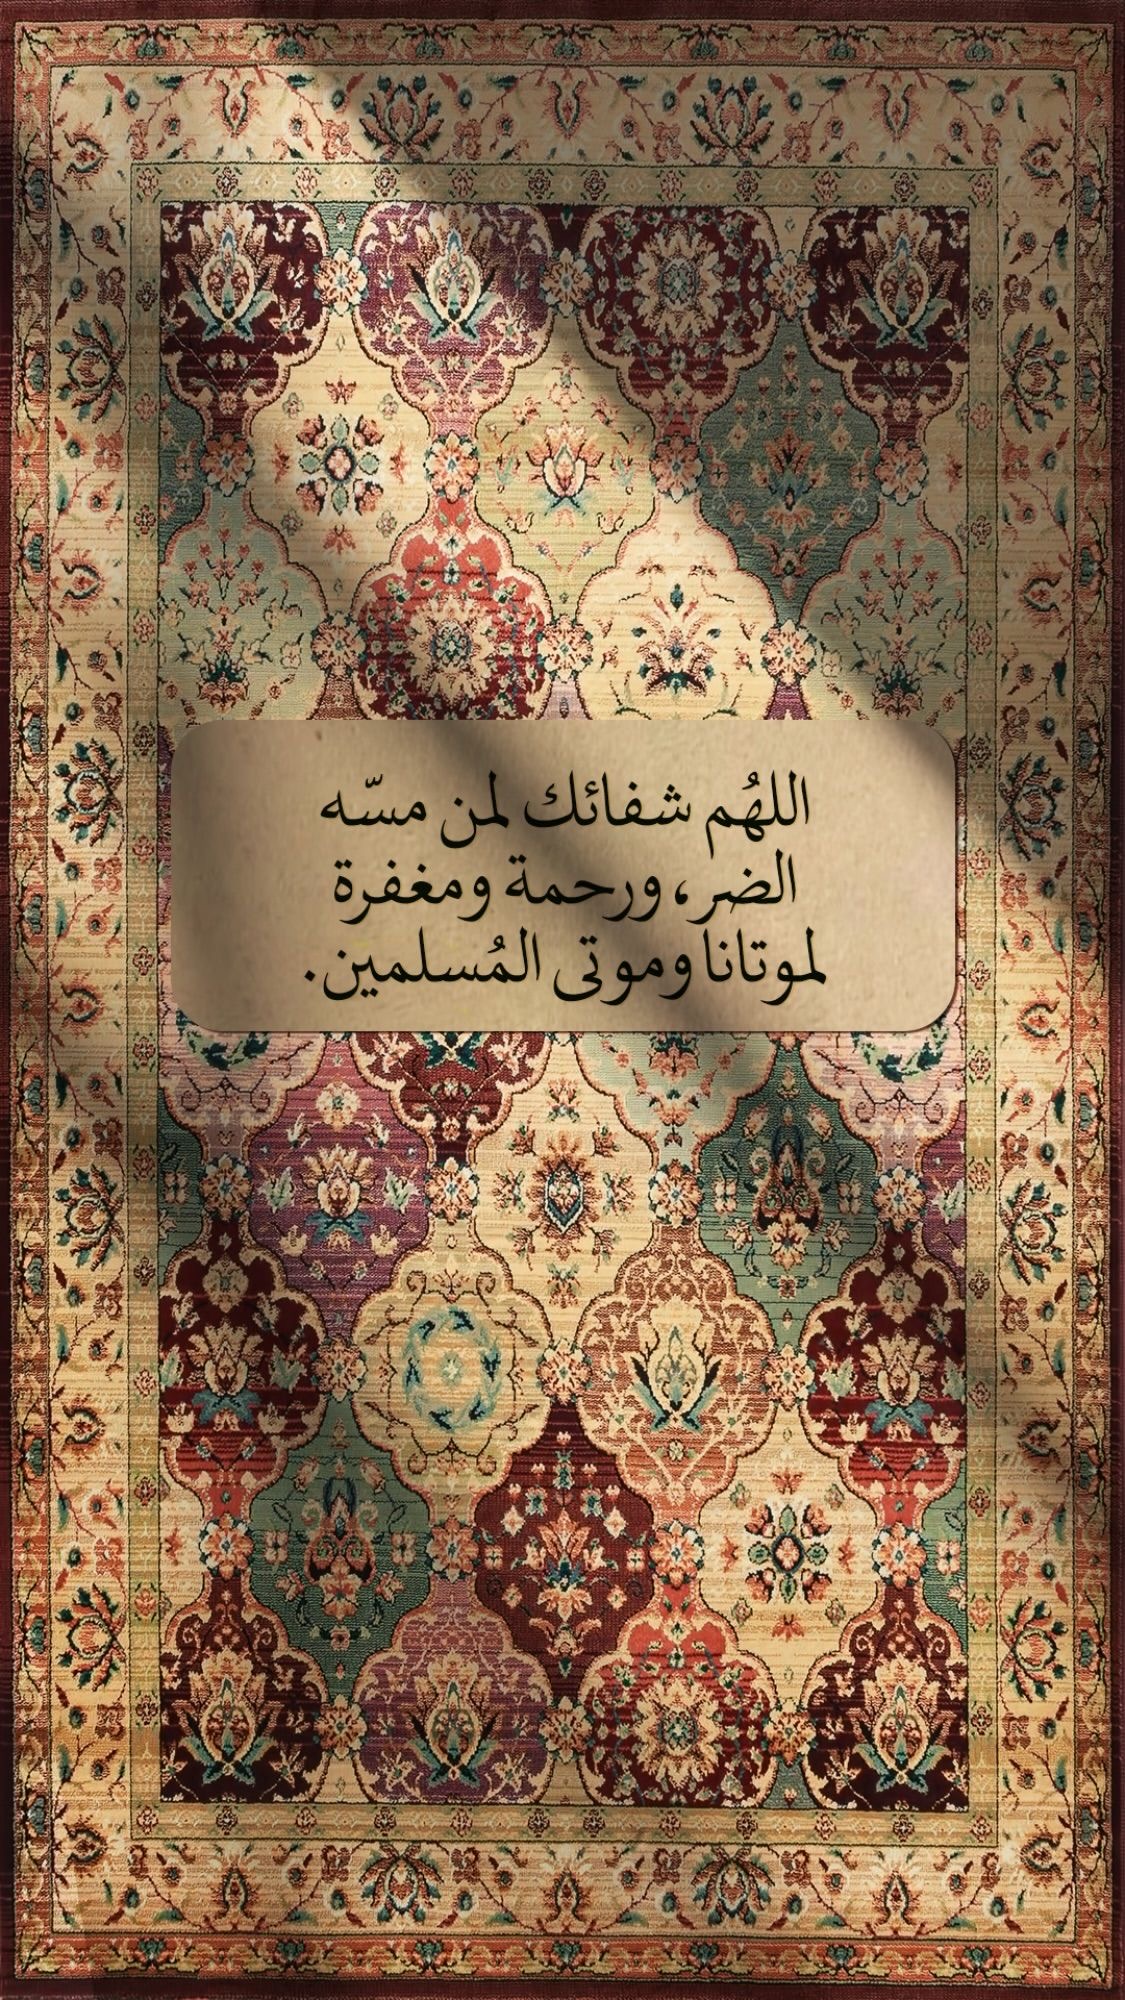 اللهُم شفائك لمن مسّه
الضر، ورحمة ومغفرة
لموتانا وموتى المُسلمين.